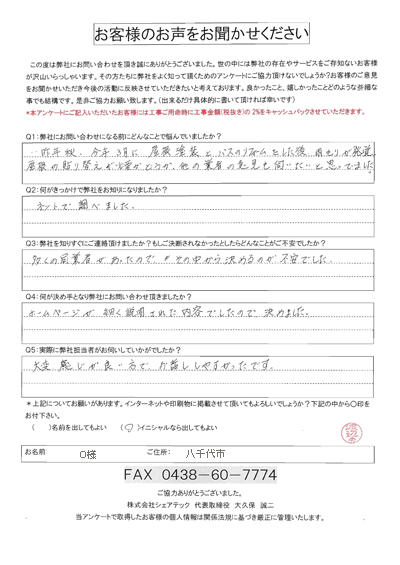 お客様のお声をお聞かせください
この度は弊社にお問い合わせを頂き誠にありがとうございました。世の中には弊社の存在やサービスをご存知ないお客様
が沢山いらっしゃいます。その方たちに弊社をよく知って頂くためのアンケートにご協力頂けないでしょうか？お客様のご意見
をお聞かせいただき今後の活動に反映させていただきたいと考えております。良かったこと、嬉しかったことどのような些細な
事でも結構です。是非ご協力お願い致します。（出来るだけ具体的に書いて頂ければ幸いです）
*本アンケートにご記入いただいたお客様には工事ご用命時に工事金額（税抜き）の2%をキャッシュバックさせていただきます。
Q1：弊社にお問い合わせになる前にどんなことで悩んでいましたか？
昨年秋、今年3月に屋根塗装とバスのリフォームをした後、雨もりが発覚
屋根の貼り替えが必要かどうか、他の業者の意見も伺いたいと思ってました。
Q2：何がきっかけで弊社をお知りになりましたか？
ネットで調べました。
Q3：弊社を知りすぐにご連絡頂けましたか？もしご決断されなかったとしたらどんなことがご不安でしたか？
多くの同業者があったので、その中から決めるのが不安でした。
Q4：何が決め手となり弊社にお問い合わせ頂きましたか？
ホームページが細く説明された内容でしたので決めました。
Q5：実際に弊社担当者がお伺いしていかがでしたか？
大変感じが良い方で、お話ししやすかったです。
*上記についてお願いがあります。インターネットや印刷物に掲載させて頂いてもよろしいでしょうか？下記の中から○印を
お付下さい。
（　）名前を出してもよい　（○）イニシャルなら出してもよい
お名前　O様　ご住所：　八千代市
FAX 0438-60-7774
ご協力ありがとうございました。
株式会社シェアテック　代表取締役　大久保 誠二
当アンケートで取得したお客様の個人情報は関係法規に基づき厳正に管理いたします。